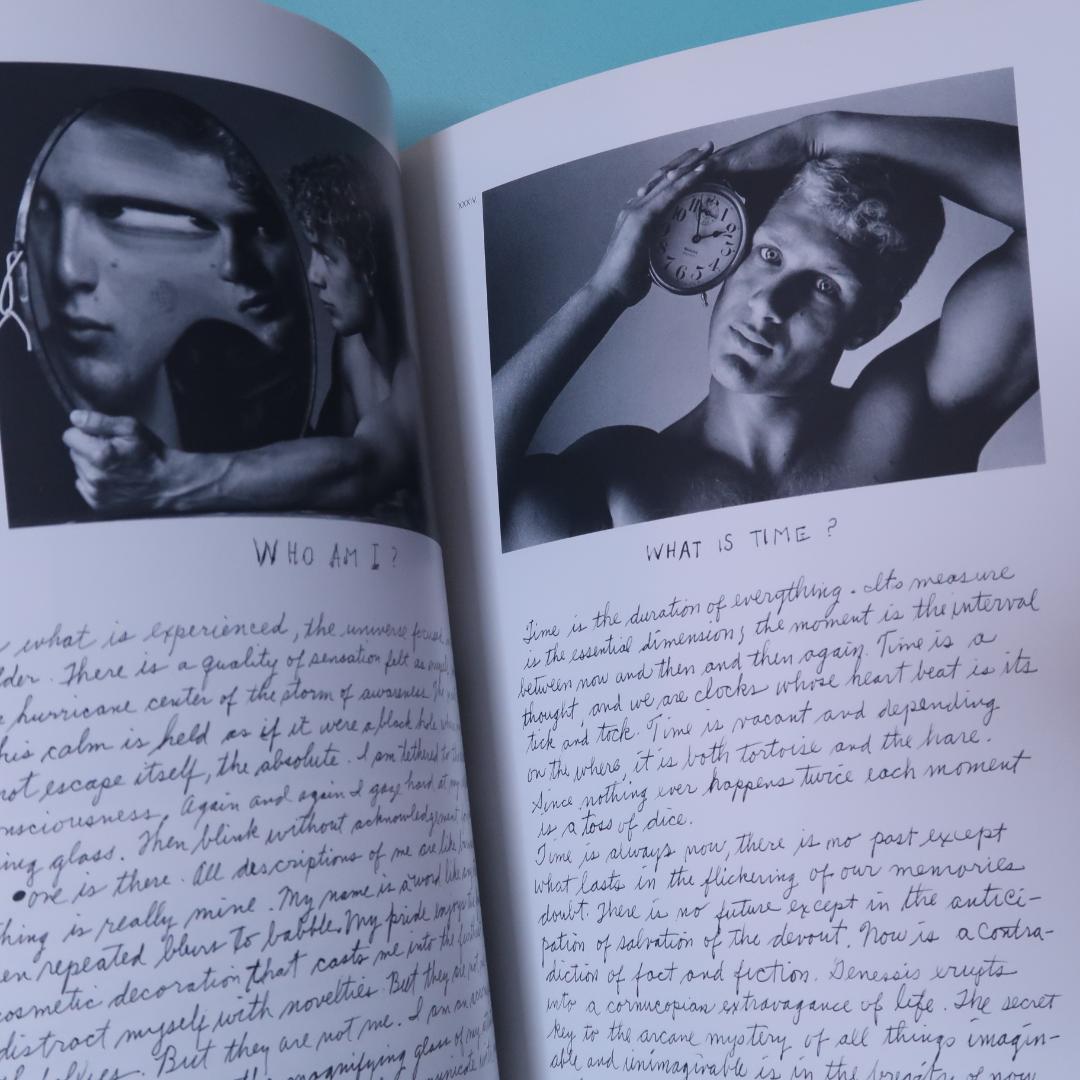 WHO AM I?
what is experienced, the universe
There is a quality of sensation felt as
hurricane center of the storm of awareness.
his calm is held as if it were a black hole
not escape itself, the absolute. I am tethered to
Again and again I gaze hard at my
glass. Then blink without acknowledgement
one is there. All descriptions of me are like
thing is really mine. My name is a word like any
repeated blurs to babble. My pride enjoys the
cosmetic decoration that casts me into the
distract myself with novelties. But they are not
But they are not me. I am an
magnifying glass of my
XXXIV.
12
1
2
4
5
6
7
10
11
WHAT IS TIME?
Time is the duration of everything. Its measure
is the essential dimension; the moment is the interval
between now and then and then again. Time is a
thought, and we are clocks whose heart beat is its
tick and tock. Time is vacant and depending
on the where, it is both tortoise and the hare.
Since nothing ever happens twice each moment
is a toss of dice.
Time is always now, there is no past except
what lasts in the flickering of our memories
doubt. There is no future except in the antici-
pation of salvation of the devout. Now is a contra-
diction of fact and fiction. Genesis erupts
into a cornucopian extravagance of life. The secret
key to the arcane mystery of all things imagin-
able and unimaginable is in the brevity of now